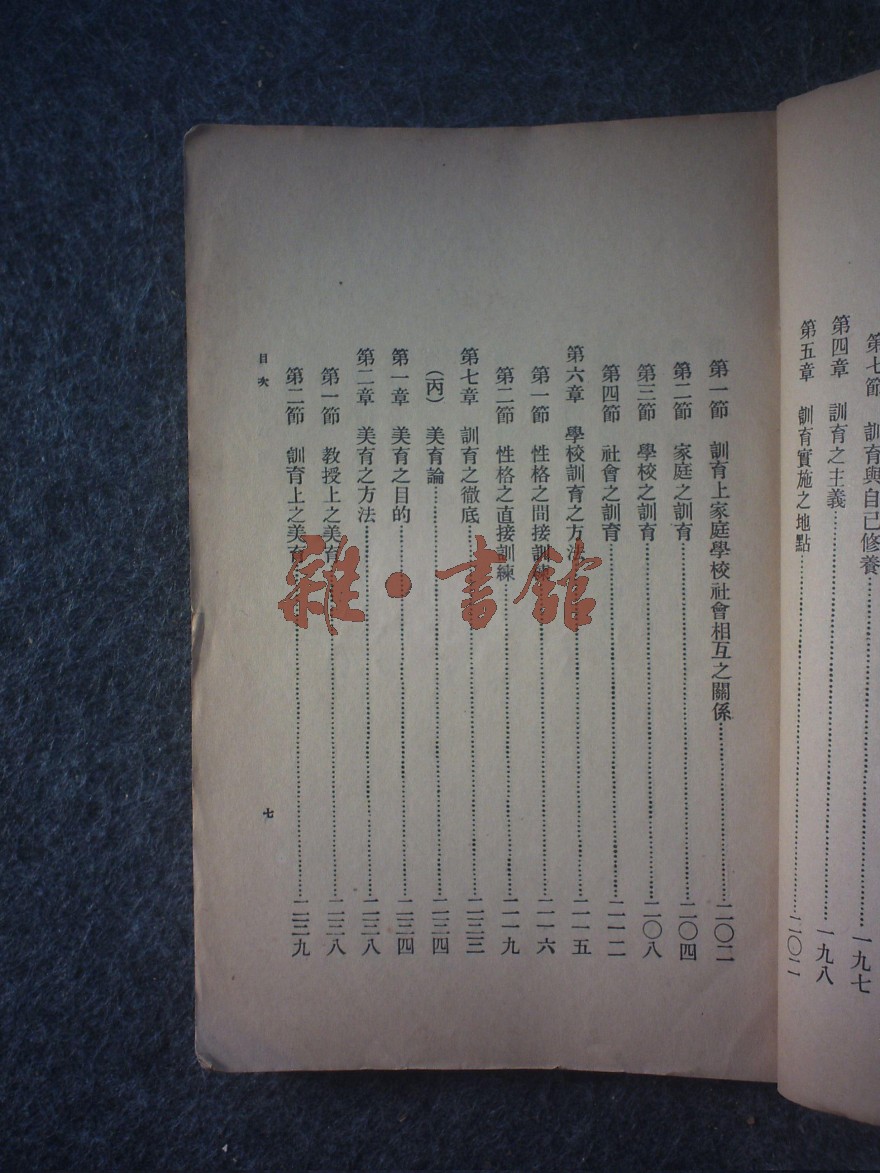 第七節　訓育與自己修養……一九七
第四章　訓育之主義……一九八
第五章　訓育實施之地點……二〇二
第一節　訓育上家庭學校社會相互之關係……二〇二
第二節　家庭之訓育……二〇四
第三節　學校之訓育……二〇八
第四節　社會之訓育……二一二
第六章　學校訓育之方法……二一五
第一節　性格之間接訓練……二一六
第二節　性格之直接訓練……二一九
第七章　訓育之徹底……二三三
（丙）美育論……二三四
第一章　美育之目的……二三四
第二章　美育之方法……二三八
第一節　教授上之美育……二三八
第二節　訓育上之美育……二三九
目次
七
雜·書館